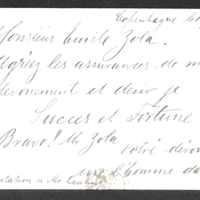 Copenhague
Monsieur Emile Zola.
Agréez les assurances de m
dévouement et deux je
Succes et Fortune
Bravo! Mr Zola
votre dévou
l'homme da